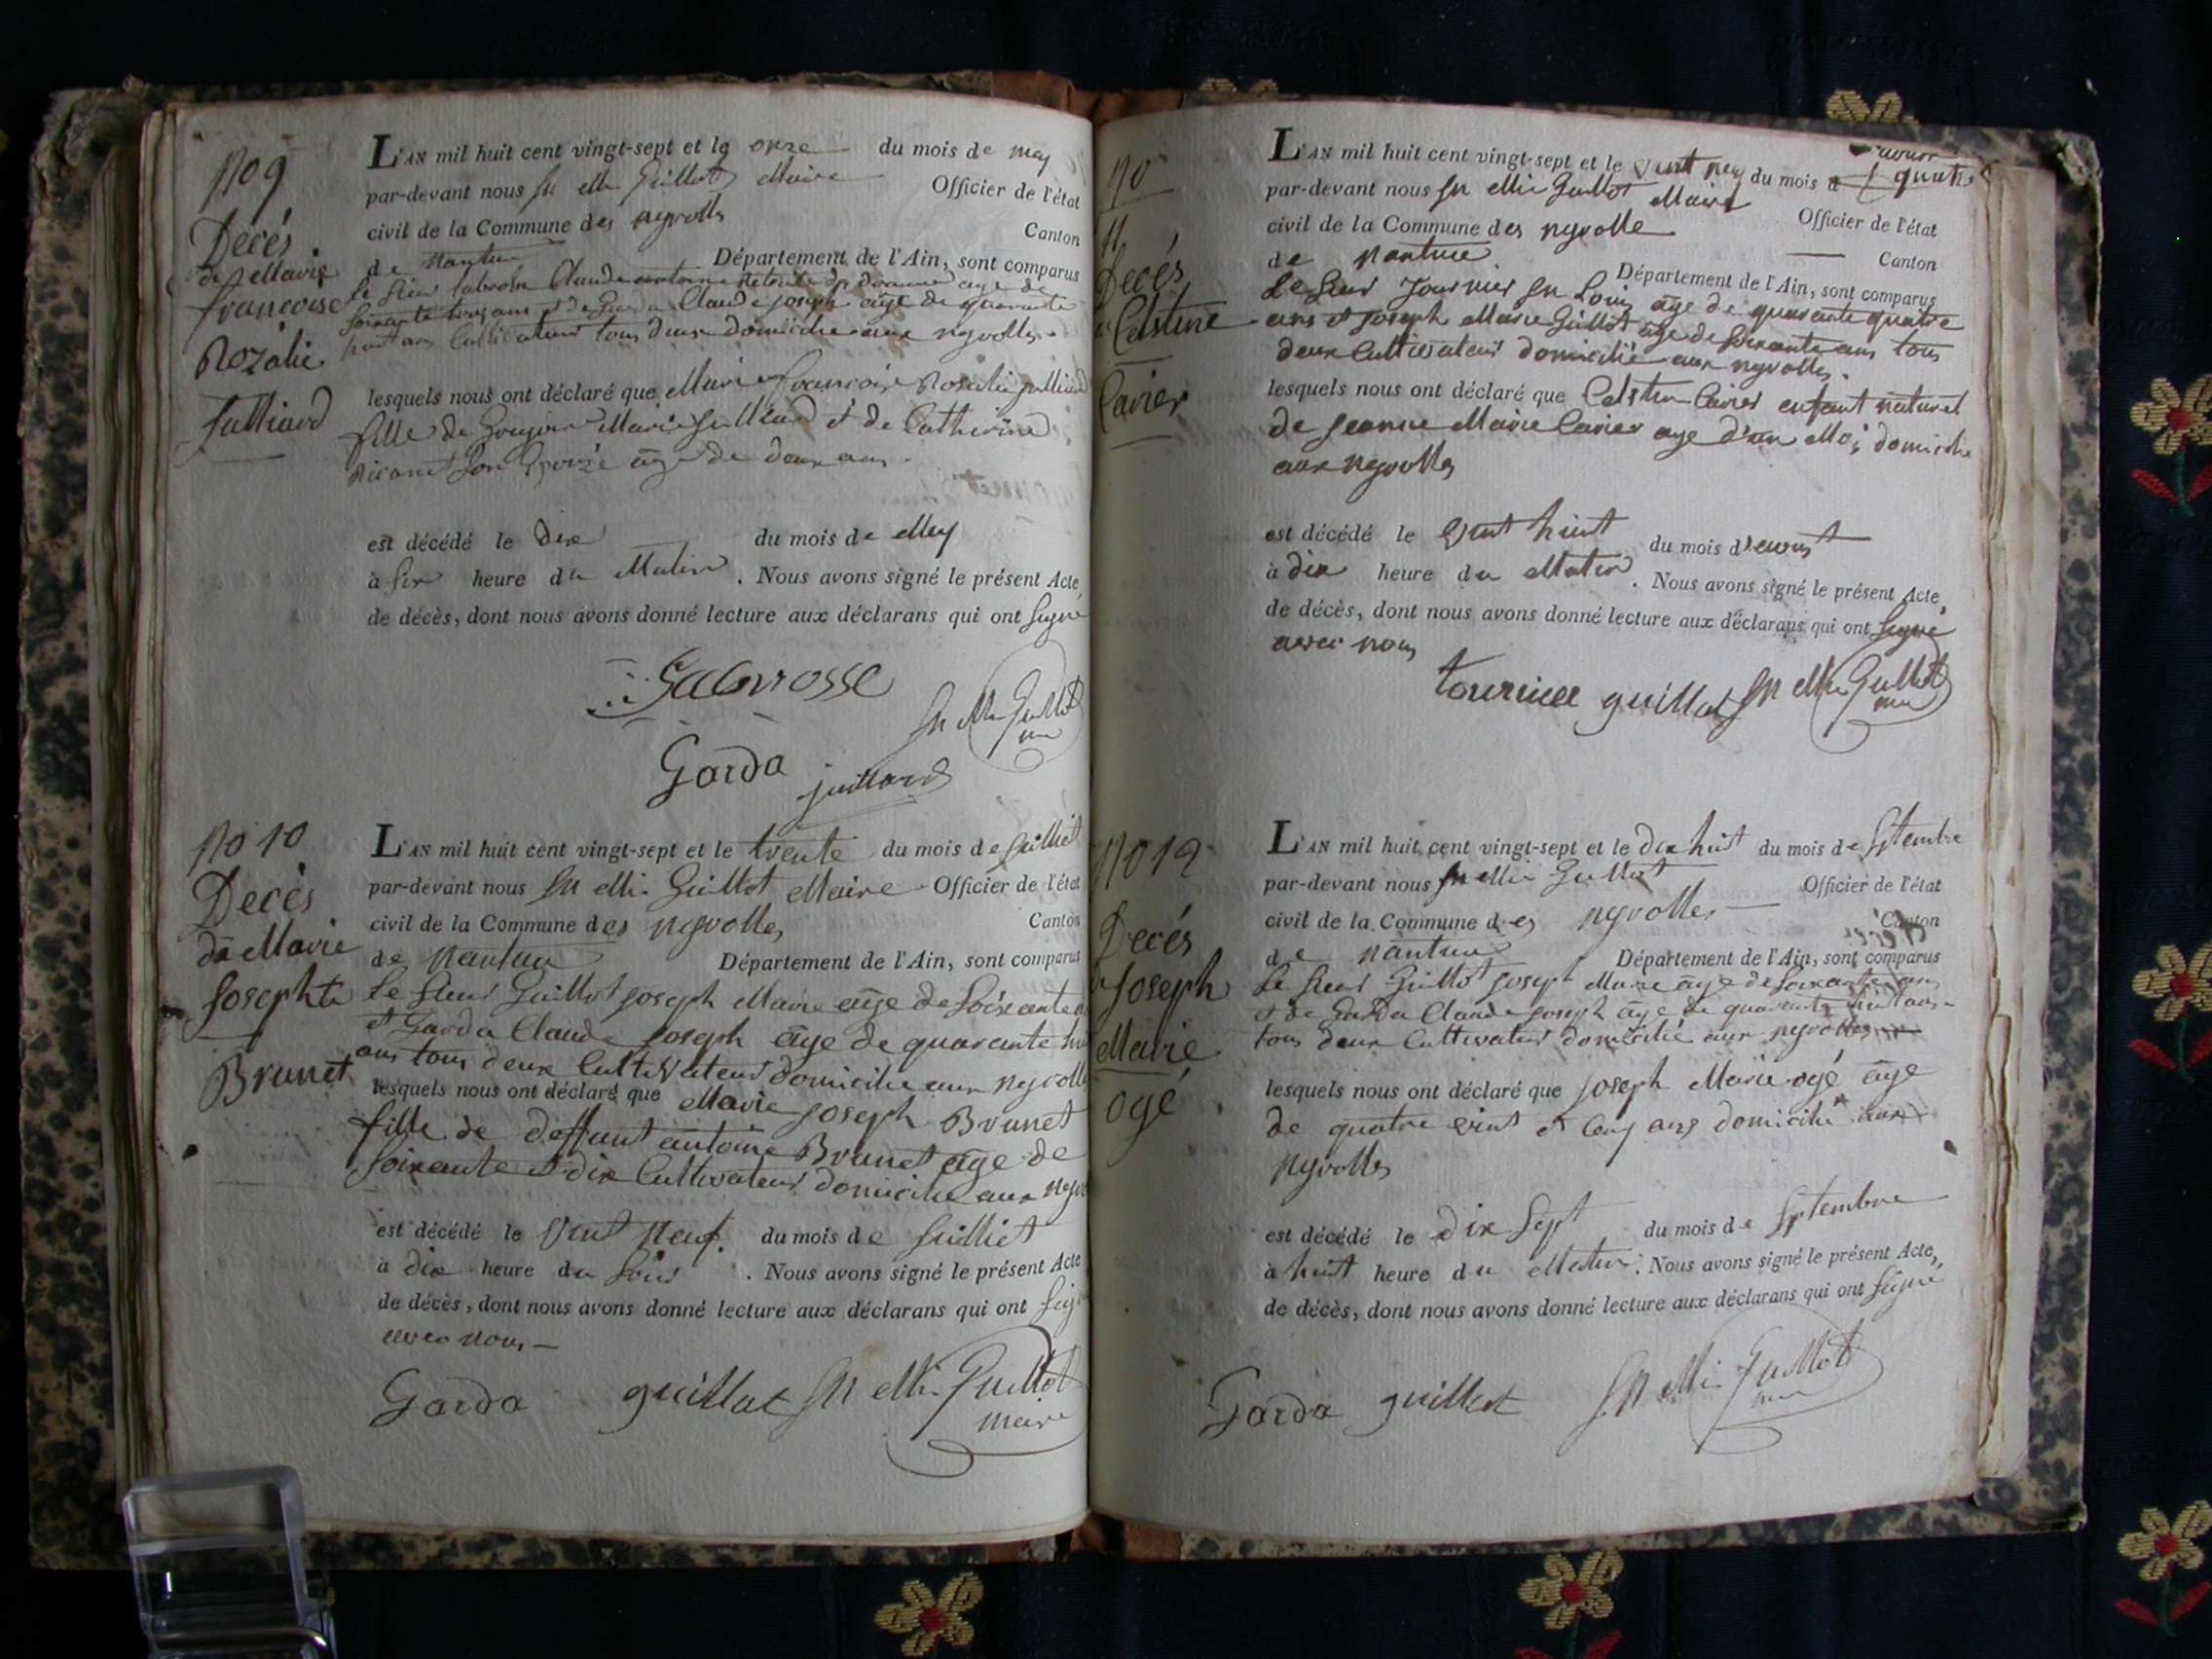 No 9
Decés
de Marie
francoise
Rozalie
Julliard
L'AN mil huit cent vingt-sept et le onze du mois de mey
par-devant nous Jn Mie Guillot Maire Officier de l'état
civil de la Commune des neyrolles Canton
de Nantua Département de l'Ain, sont comparus
le sieur labrosse Claude antoine Retraité des douane age de
soixante trois ans et de Garda Claude joseph age de quarante
huit ans Cultivateur tous deux domicilie aux neyrolles
lesquels nous ont déclaré que Marie francoise Rosalie julliard
fille de Marie Julliard et de Catherine
son Epouse âge de deux ans
est décédé le dix du mois de Mey
à six heure du Matin. Nous avons signé le présent Acte
de décès, dont nous avons donné lecture aux déclarans qui ont signé
Labrosse
Jn Mie Guillot
Garda
juillard
No 10
Decès
de Marie
Josephte
Brunet
L'AN mil huit cent vingt-sept et le trente du mois de Juilliet
par-devant nous Jn Mie Guillot Maire Officier de l'état
civil de la Commune des neyrolles Canton
de Nantua Département de l'Ain, sont comparus
le sieur Guillot joseph Marie âge de soixante
et Garda Claude joseph âge de quarante
ans tous deux Cultivateur domicilie aux neyrolle
lesquels nous ont déclaré que Marie joseph Brunet
fille de deffunt antoine Brunet âge de
soixante et dix Cultivateur domicilie aux
est décédé le vint neuf du mois de Juilliet
à dix heure du soir. Nous avons signé le présent Acte
de décès, dont nous avons donné lecture aux déclarans qui ont
avec nous
Garda guillot Jn Mie Guillot
maire
No
11
Decés
Celstine
Cavier
L'AN mil huit cent vingt-sept et le vint neuf du mois
par-devant nous Jn Mie Guillot Maire Officier de l'état
civil de la Commune des neyrolle Canton
de Nantua Département de l'Ain, sont comparus
le sieur Tournier Jn Louis âge de quarante quatre
ans et joseph Marie Guillot âge de soixante ans tous
deux Cultivateur domicilié aux neyrolles
lesquels nous ont déclaré que Celstin Cavier enfant naturel
de jeanne Marie Cavier age d'un Moi domicilie
aux neyrolles
est décédé le vint huit du mois d'aoust
à dix heure du Matin. Nous avons signé le présent Acte
de décès, dont nous avons donné lecture aux déclarans qui ont signé
avec nous
tournier guillot Jn Mie Guillot
No 12
Decés
Joseph
Marie
ogé
L'AN mil huit cent vingt-sept et le dix huit du mois de Septembre
par-devant nous Jn Mie Guillot Officier de l'état
civil de la Commune des neyrolles Canton
de Nantua Département de l'Ain, sont comparus
le sieur Guillot joseph Marie âge de soixante ans
et de Garda Claude joseph âge de quarante huit ans
tous deux Cultivateur domicilié aux neyrolles
lesquels nous ont déclaré que joseph Marie ogé âge
de quatre vint et Cinq ans domicilié aux
neyrolles
est décédé le dix Sept du mois de Septembre
à huit heure du Matin. Nous avons signé le présent Acte,
de décès, dont nous avons donné lecture aux déclarans qui ont signé
Garda guillot Jn Mie Guillot